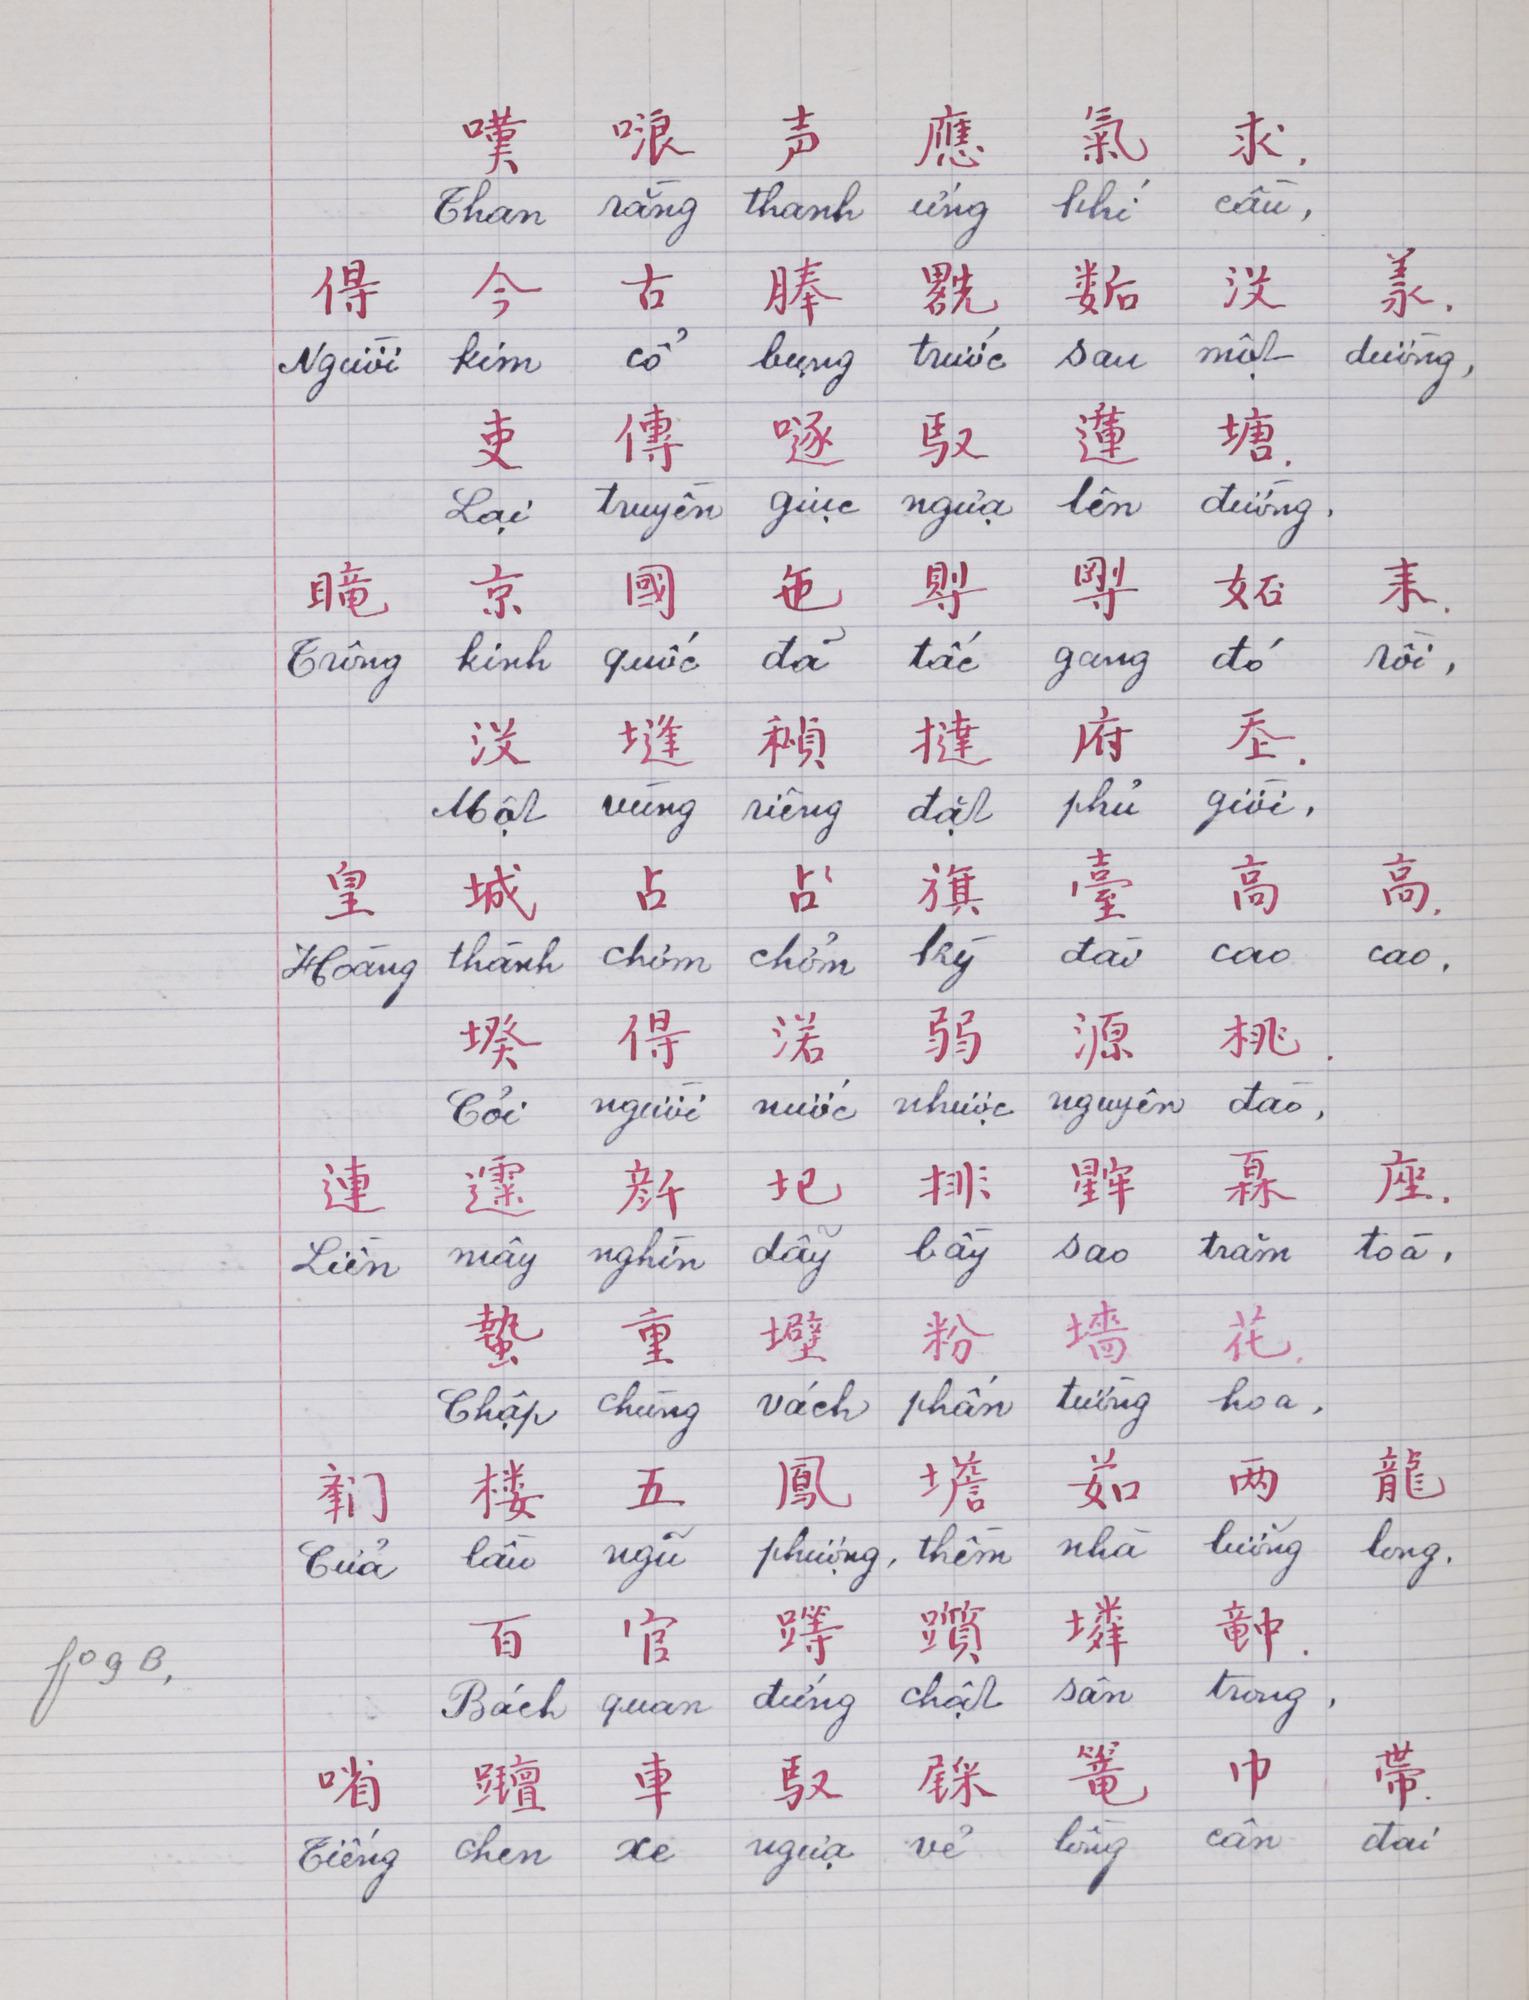 嘆 哴 声 應 氣 求.
Than rằng thanh ứng khí cầu,
得 今 古 腜 𠠩 𡢐 没 羕.
Người kim cổ bụng trước sau một dường,
吏 傳 𠽖 馭 蓮 塘.
Lại truyền giục ngựa lên đường,
𥉰 京 國 㐌 𡬷 𡬼 妬 耒.
Trông kinh quốc đã tấc gang đó rồi,
没 塳 𥢅 撻 府 𡗶.
Một vùng riêng đặt phủ giời,
皇 城 占 占 旗 臺 高 高.
Hoàng thành chơm chởm kỳ đài cao cao,
㙺 得 渃 弱 源 桃.
Cõi người nước nhược nguyên đào,
連 𩄲 𠦳 圯 排 𣋀 𤾓 座.
Liền mây nghìn dẫy bầy sao trăm toà,
蟄 重 壁 粉 墙 花.
Chập chùng vách phấn tường hoa,
𨷯 楼 五 鳳 㙴 茹 两 龍
Cửa lầu ngũ phượng, thềm nhà lưỡng long,
百 官 𨅸 躓 㷠 𥪝.
Bách quan đứng chật sân trong,
㗂 𨄞 車 馭 𨤰 篭 巾 帶.
Tiếng chen xe ngựa vẻ lồng cân đai
fo 9 B,